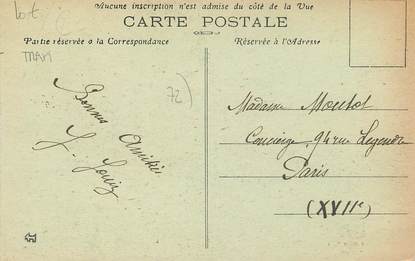 Lot
TRAM
Aucune inscription n'est admise du côté de la Vue
CARTE POSTALE
Partie réservée à la Correspondance
Réservée à l'Adresse
72
Bonnes Amitiés
Madame Moulot
Concierge, 94 rue Legendre
Paris
(XVIIe)